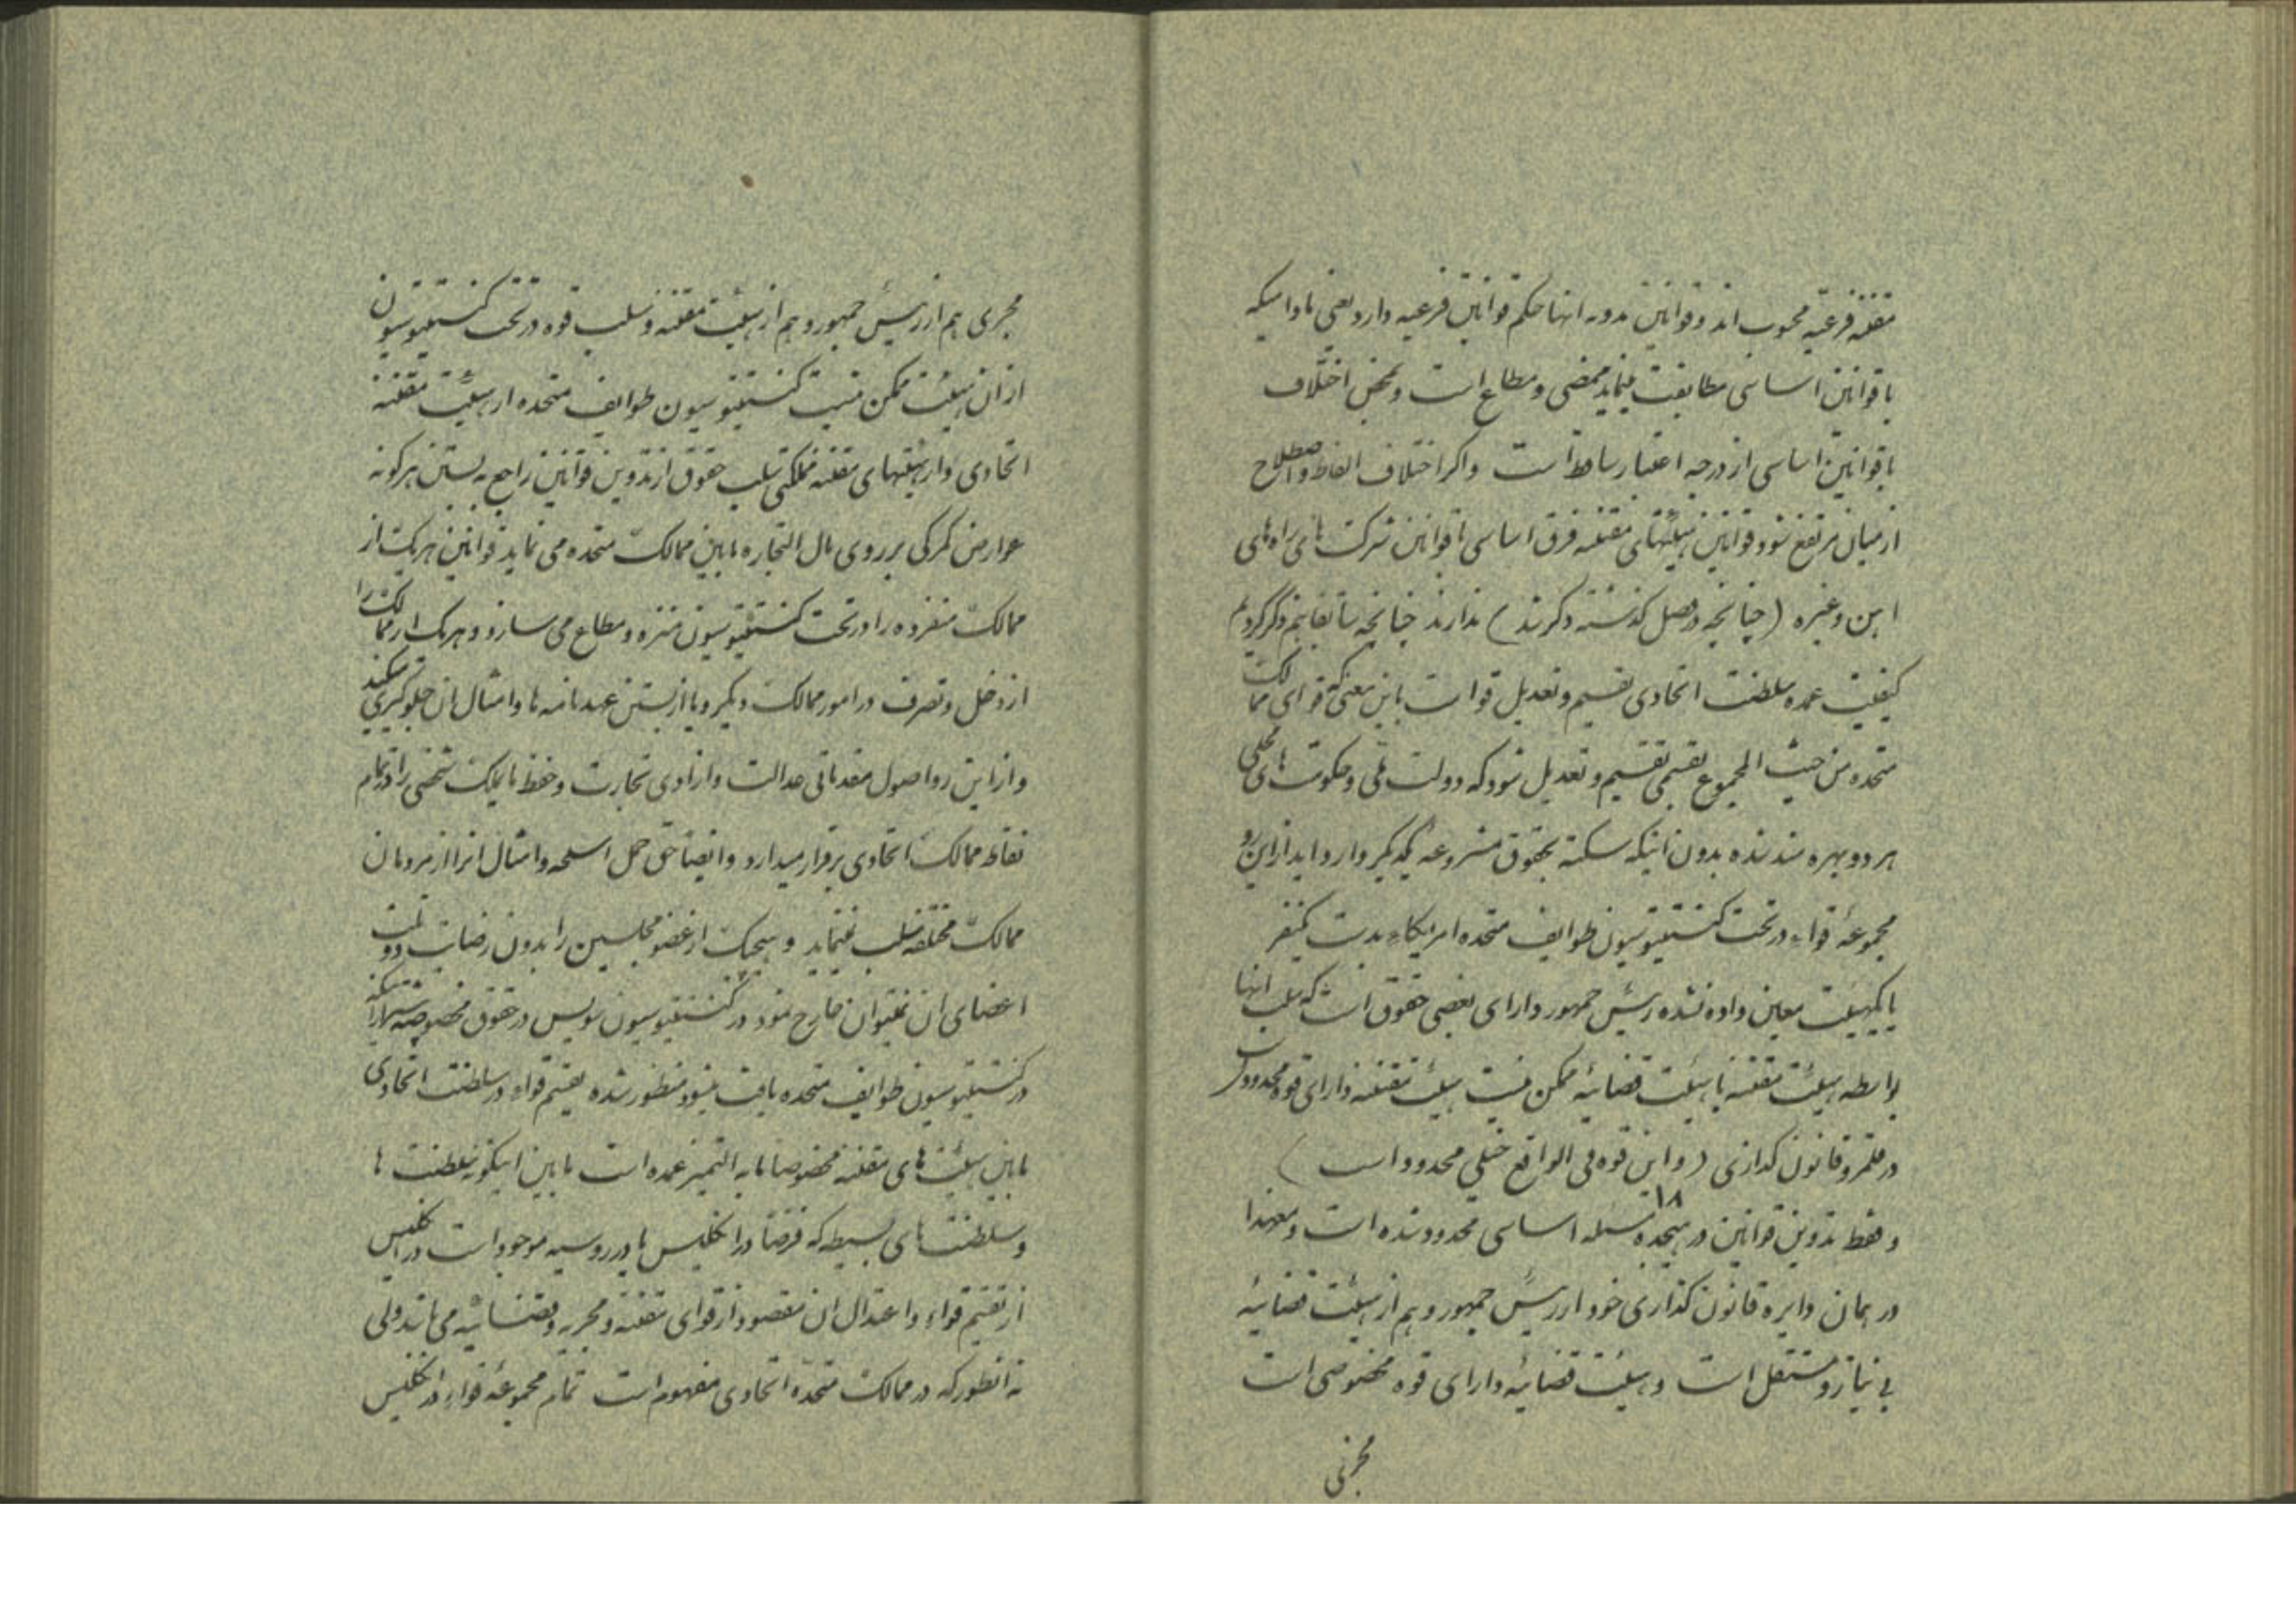 مقننه فرعیه محسوب اند و قوانین مدونه انها حکم قوانین فرعیه دارد یعنی مادامیکه
با قوانین اساسی مطابقت مینماید ممضی و مطاع است و بمحض اختلاف
با قوانین اساسی از درجه اعتبار ساقط است واکر اختلاف الفاظ و اصطلاح
از میان مرتفع شود قوانین هیئتهای مقننه فرق اساسی با قوانین شرکت های راه های
اهن وغیره (چنانچه در فصل کذشته ذکر شد) ندارند چنانچه سابقا هم ذکر کردیم
کیفیت عمده سلطنت اتحادی تقسیم و تعدیل قوا است باین معنی که قوای ممالک
متحده من حیث المجموع بقسمی تقسیم و تعدیل شود که دولت ملی و حکومت های محلی
هر دو بهره مند شده بدون اینکه سکته بحقوق مشروعه یکدیکر وارد اید از این رو
مجموعهٔ قواء در تحت کنستیتوسیون طوایف متحده امریکاء بدست یکنفر
یا یکهیئت معین داده نشده رئیس جمهور دارای بعضی حقوق است که سلب انها
بواسطه هیئت مقننه یا هیئت قضائیه ممکن نیست هیئت مقننه دارای قوه محدود است
در قلمرو قانون کذاری (و این قوه فی الواقع خیلی محدود است)
و فقط تدوین قوانین در هیجده ۱۸ مسئله اساسی محدود شده است و معهذا
در همان دایره قانون کذاری خود از رئیس جمهور و هم از هیئت قضائیه
بی نیاز و مستقل است و هیئت قضائیه دارای قوه مخصوصی است
مجری
مجری هم از رئیس جمهور و هم از هیئت مقننه و سلب قوه در تحت کنستیتوسیون
از ان هیئت ممکن نیست کنستیتوسیون طوایف متحده از هیئت مقننه
اتحادی و از هیئتهای مقننه مملکتی سلب حقوق از تدوین قوانین راجع به بستن هرکونه
عوارض کمرکی بر روی مال التجاره مابین ممالک متحده می نماید قوانین هریک از
ممالک منفرده را در تحت کنستیتوسیون منزه و مطاع می سازد و هریک از ممالک را
از دخل و تصرف در امور ممالک دیکر و یا از بستن عهدنامه ها و امثال ان جلوکیری میکند
و از این رو اصول مقدماتی عدالت و ازادی تجارت و حفظ مایملک شخصی را در تمام
نقاط ممالک اتحادی برقرار میدارد و ایضا حق حمل اسلحه و امثال انرا از مردمان
ممالک مختلفه سلب نمینماید و هیچیک از عضو مجلسین را بدون رضایت دو ثلث
اعضای ان نمیتوان خارج نمود در کنستیتوسیون سویس در حقوق مخصوصه
در کنستیتوسیون طوایف متحده یافت میشود منظور شده تقسیم قواء در سلطنت اتحادی
مابین هیئت های مقننه مخصوصا مابه التمیز عمده است مابین اینکونه سلطنت ها
و سلطنت های بسیطه که فرضا در انکلیس یا در روسیه موجود است در انکلیس
از تقسیم قواء و اعتدال ان مقصود از قوای مقننه و مجریه و قضائیه می باشد ولی
نه انطور که در ممالک متحده اتحادی مفهوم است تمام مجموعهٔ قواء در انکلیس